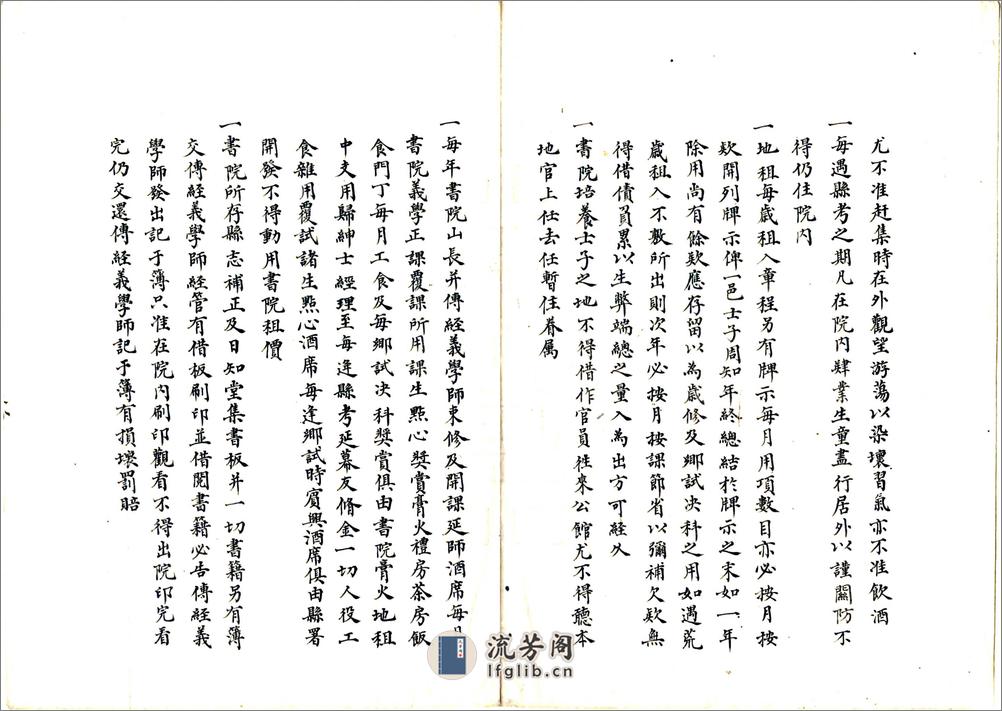 尤不准赶集時在外觀望游蕩以染壞習氣亦不准飲酒
一每遇縣考之期凡在院內肄業生童盡行居外以謹關防不
得仍住院內
一地租每歲租入章程另有牌示每月用項數目亦必按月按
欵開列牌示俾一邑士子周知年終總結於牌示之末如一年
除用尚有餘欵應存留以為歲修及鄉試决科之用如遇荒
歲租入不敷所出則次年必按月按課節省以彌補欠欵無
得借債負累以生弊端總之量入為出方可經久
一書院培養士子之地不得借作官員徃來公館尤不得聽本
地官上任去任暫住眷属
一每年書院山長并傳經義學師束修及開課延師酒席每月
書院義學正課覆課所用課生㸃心奬賞膏火禮房茶房飯
食門丁每月工食及每鄉試决科奬賞俱由書院膏火地租
中支用歸紳士經理至每逢縣考延幕友脩金一切人役工
食雜用覆試諸生㸃心酒席每逢鄉試時賓興酒席俱由縣署
開發不得動用書院租價
一書院所存縣志補正及日知堂集書板并一切書籍另有簿
交傳經義學師經管有借板刷印並借閱書籍必告傳經義
學師發出記于簿只准在院內刷印觀看不得出院印完看
完仍交還傳經義學師記于簿有損壞罰賠
流芳阁
lfglib.cn